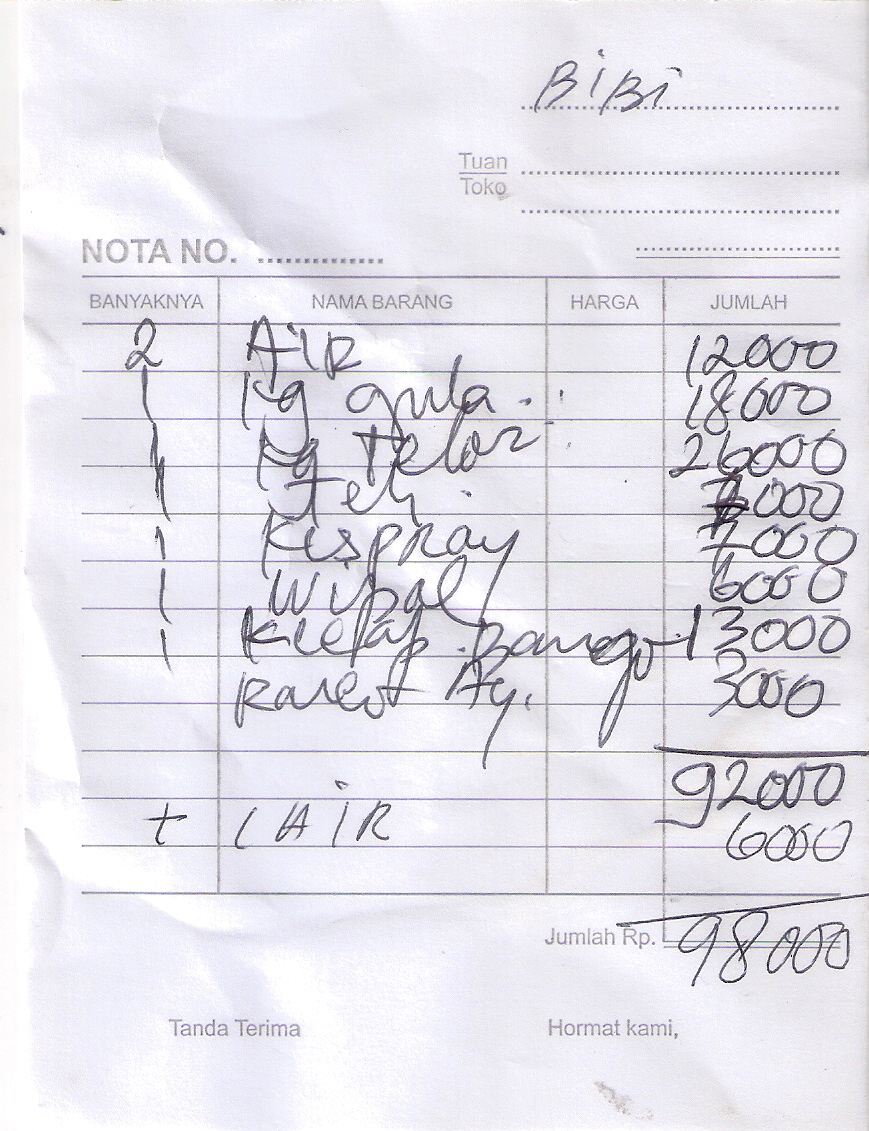 BiBi
Tuan
Toko
NOTA NO. ..............
BANYAKNYA NAMA BARANG HARGA JUMLAH
2 AIR 12000
1 kg gula 18000
1 kg Telor 26000
1 Teh 7000
1 Kispray 7000
1 Wipol 6000
1 Kecap Bango 13000
Karet Ay. 3000
92000
+ 1 AIR 6000
Jumlah Rp. 98000
Tanda Terima Hormat kami,